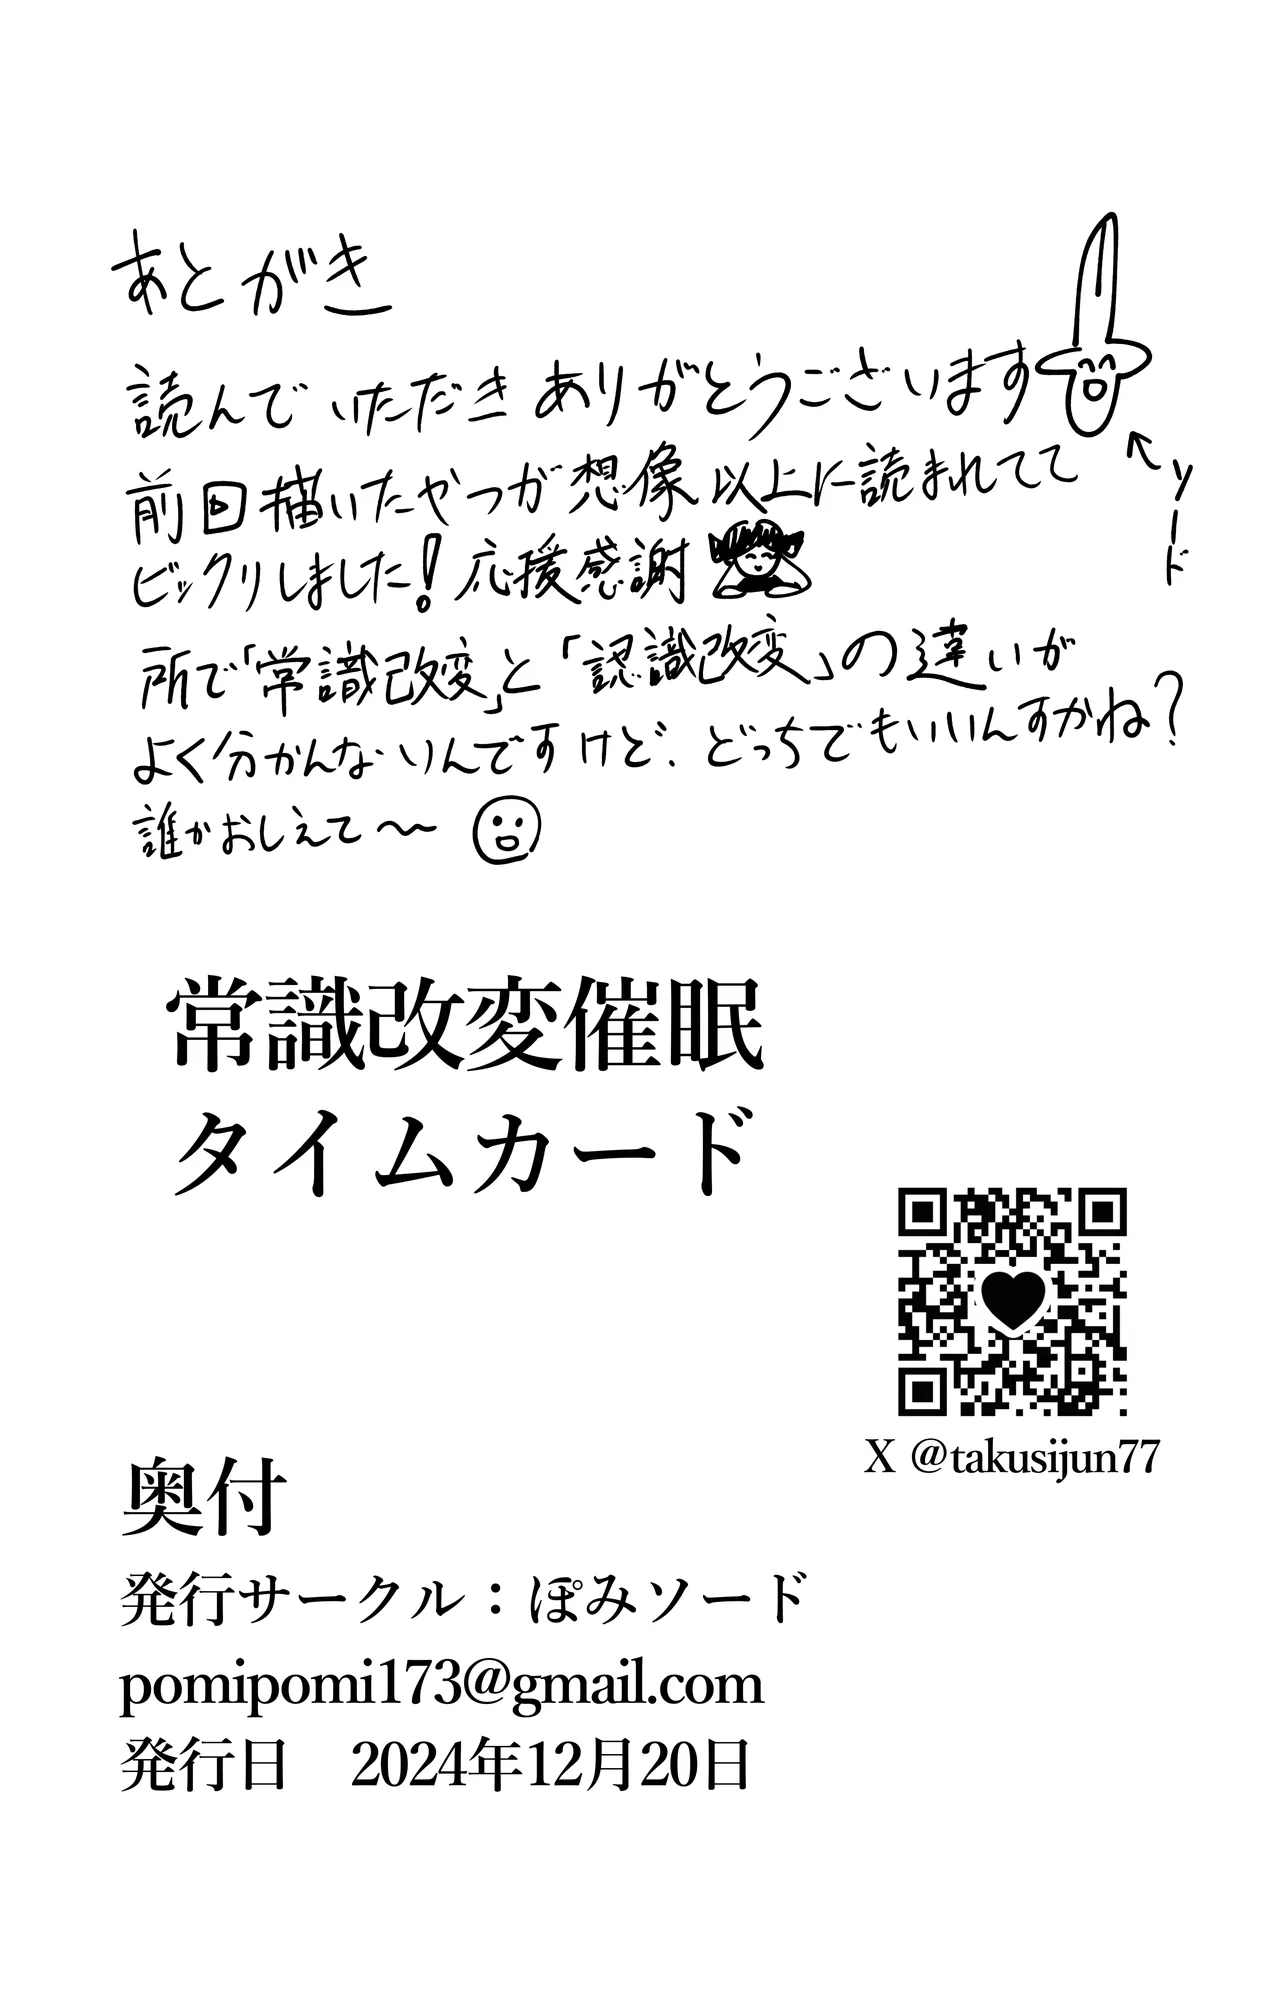 あとがき
読んでいただきありがとうございます
ソード
前回描いたやつが想像以上に読まれてて
ビックリしました!応援感謝
所で「常識改変」と「認識改変」の違いが
よく分かんないんですけど、どっちでもいいんすかね?
誰かおしえて〜〜
常識改変催眠
タイムカード
X @takusijun77
奥付
発行サークル：ぽみソード
pomipomi173@gmail.com
発行日　2024年12月20日